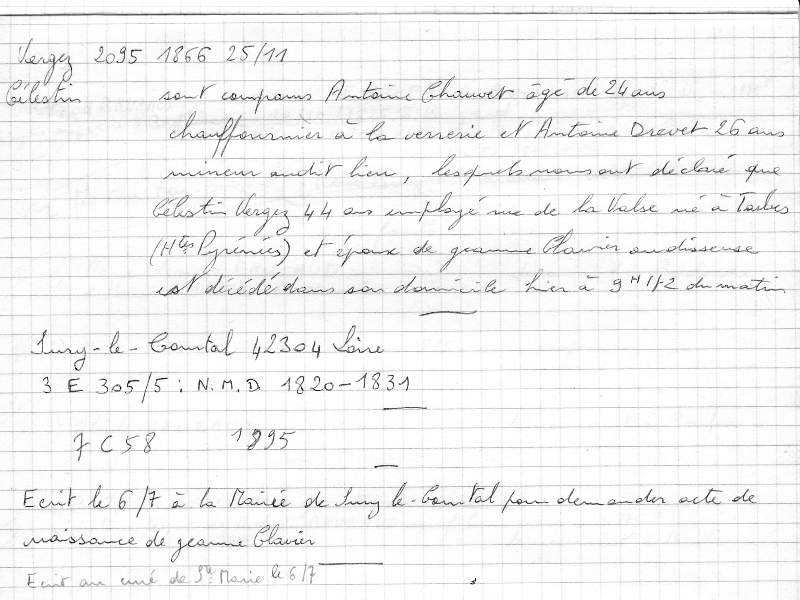 Vergez 2095 1866 25/11
Célestin sont comparus Antoine Chauvet âgé de 24 ans
chauffournier à la verrerie et Antoine Drevet 26 ans
mineur audit lieu, lesquels nous ont déclaré que
Célestin Vergez 44 ans employé rue de la Valse né à Tarbes
(Htes Pyrénées) et époux de Jeanne Clavier ourdisseuse
est décédé dans son domicile hier à 9H 1/2 du matin
Sury-le-Comtal 42304 Loire
3 E 305/5 : N.M.D. 1820-1831
7 C 58 1895
Ecrit le 6/7 à la Mairie de Sury le-Comtal pour demander acte de
naissance de Jeanne Clavier
Ecrit au curé de Ste Marie le 6/7